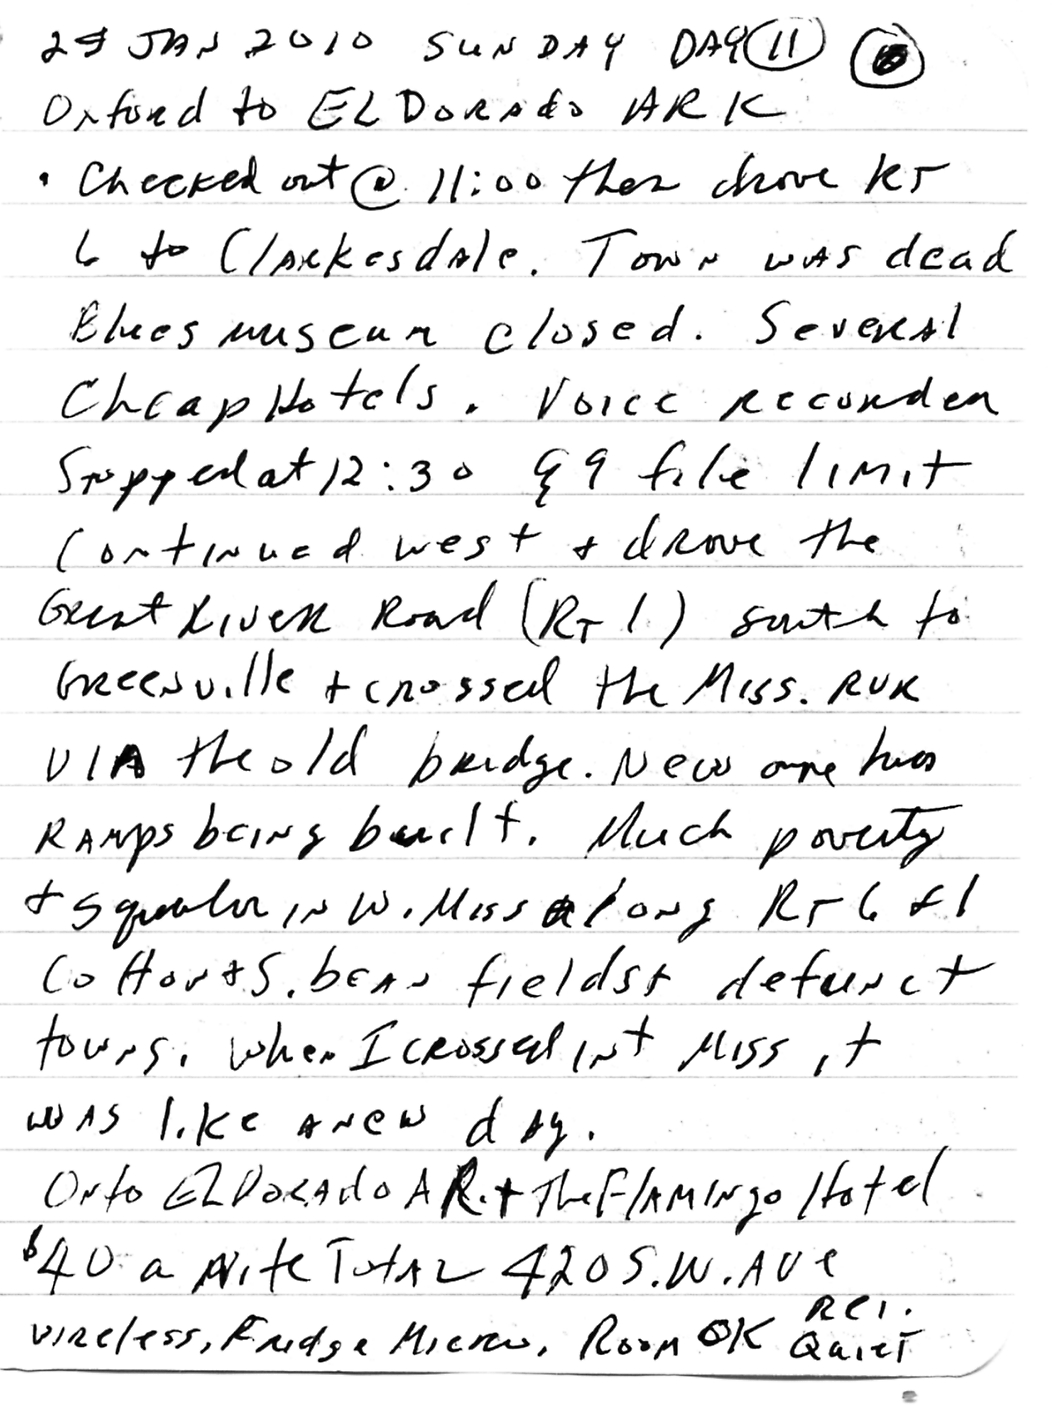 29 JAN 2010 SUNDAY DAY 11 6
Oxford to EL DORAdo ARK
• Checked out @ 11:00 then drove RT
6 to ClARkesdAle. Town wAs dead
Blues museum closed. SeveRAl
Cheap Hotels. Voice recorder
Stopped at 12:30 99 file limit
Continued west + drove the
Great RiveR Road (RT 1) south to
Greenville + crossed the Miss. RVR
VIA the old bridge. New one has
RAMps being built. Much poverty
+ squalor in W. Miss along RT 6 + 1
Cotton + S. beAn fields + defunct
towns. When I crossed int Miss it
wAs like A new dAy.
Onto EL DORAdo AR. + The FlAMINgo Hotel
$40 a Nite TotAL 420 S. W. AVe
wireless, Fridge Micro, Room OK Rel.
Quiet